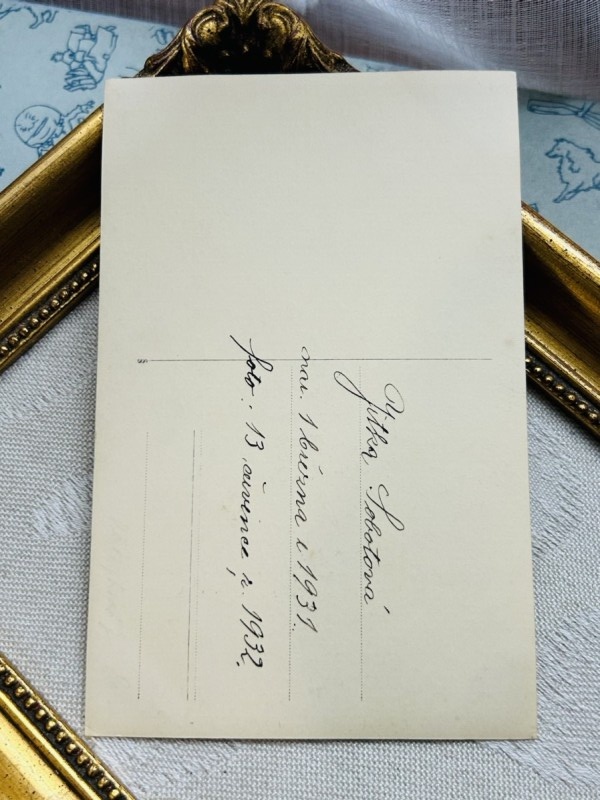 Jitka Sobotová
nar. 1 března r 1931.
foto: 13 července r. 1932.